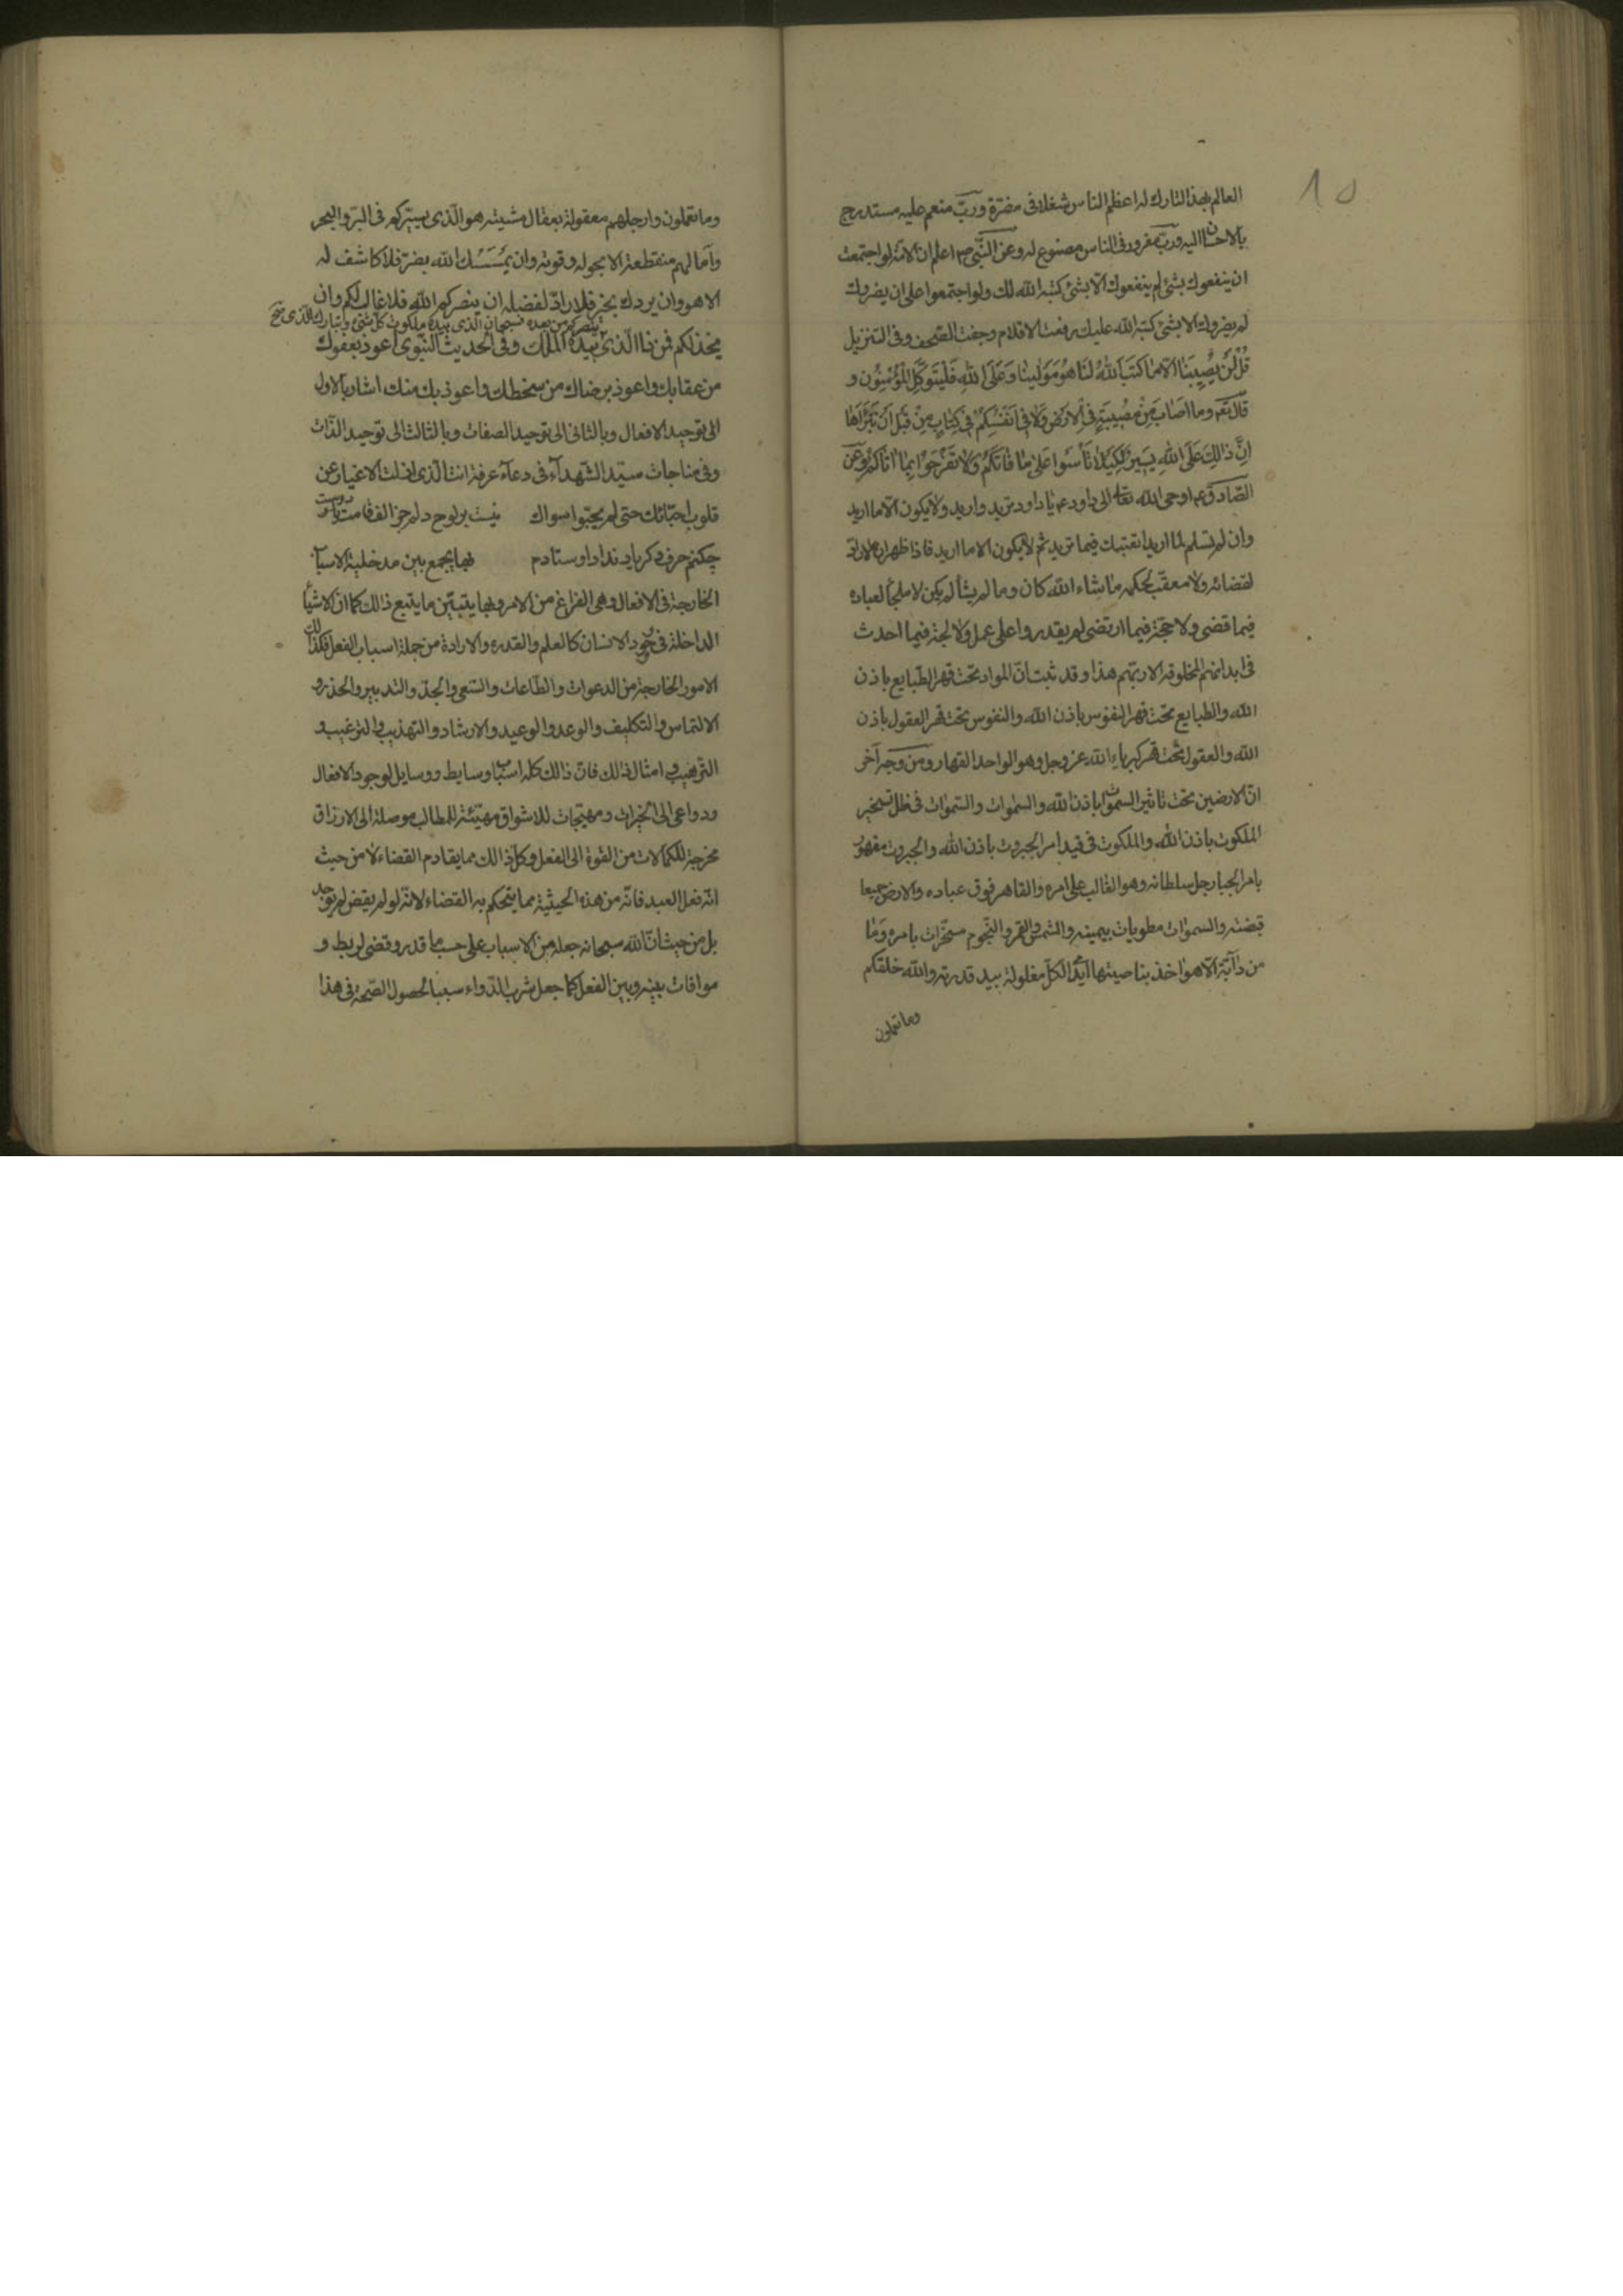 ١٥
العالم بهذا التارك له اعظم الناس شغلا فى مضرة وربّ منعم عليه مستدرج
بالاحسان اليه وربّ مغرور فى الناس مصنوع له وعن النّبى ص اعلم ان الامّة لو اجتمعت
ان ينفعوك بشئ لم ينفعوك الّا بشئ كتبه الله لك ولو اجتمعوا على ان يضروك
لم يضروك الا بشئ كتبه الله عليك رفعت الاقلام وجفت الصّحف وفى التنزيل
قُلْ لَنْ يُصِيبَنَا اِلّا مَا كَتَبَ اللهُ لَنَا هُوَ مَوْلٰينَا وَعَلَى اللهِ فَلْيَتَوَكَّلِ المُؤْمِنُون و
قال تعم وما اَصَابَ مِنْ مُصِيبَةٍ فِى الْاَرْضِ وَلَا فِى اَنْفُسِكُمْ اِلّا فِى كِتَابٍ مِنْ قَبْلِ اَنْ نَبْرَاَهَا
اِنَّ ذَالِكَ عَلَى اللهِ يَسِيرٌ لِكَيْلَا تَأْسَوْا عَلٰى مَا فَاتَكُمْ وَلَا تَفْرَحُوا بِمَا اٰتَاكُمْ وعن
الصّادق ع اوحى الله تعالى الى داود ع يا داود تريد واريد ولا يكون الّا ما اريد
وان لم تسلم لما اريد اتعبتك فيما تريد ثم لا يكون الا ما اريد فاذا ظهر ان لا رادّ
لقضائه ولا معقّب لحكمه ما شاء الله كان وما لم يشأ لم يكن لا ملجأ لعباده
فيما قضى ولا حجّة فيما ارتضى لم يقدروا على عمل ولا لجة فيما احدث
فى ابدانهم المخلوقة الا ربّهم هذا وقد ثبت انّ المواد تحت قهر الطّبايع باذن
الله والطبايع تحت قهر النفوس باذن الله والنفوس تحت قهر العقول باذن
الله والعقول تحت قهر كبرياء الله عز وجل وهو الواحد القهار ومن وجه آخر
انّ الارضين تحت تاثير السموات باذن الله والسموات والسّموات فى ظل تسخير
الملكوت باذن الله والملكوت فى قيد اسر الجبروت باذن الله والجبروت مقهور
بامر الجبار جل سلطانه وهو الغالب على امره والقاهر فوق عباده والارض جميعا
قبضته والسموات مطويات بيمينه والشمس والقمر والنجوم مسخّرات بامره وما
من دآبّة الّا هو اخذ بناصيتها ايدى الكلّ مغلولة بيد قدرته والله خلقكم
وما تعملون
وما تعملون وارجلهم معقولة بعقال مشيته هو الّذى يسيّركم فى البرّ والبحر
وآمالهم منقطعة الا بحوله وقوته وان يَمْسَسْك الله بضرّ فلا كاشف له
الا هو وان يردك بخير فلا رادّ لفضله ان ينصركم الله فلا غالب لكم وان
ينصركم من بعده فسبحان الذى بيده ملكوت كل شئ وتبارك الذى
يخذلكم فمن ذا الّذى بيده الملك وفى الحديث النّبوى اعوذ بعفوك
من عقابك واعوذ برضاك من سخطك واعوذ بك منك اشار بالاول
الى توحيد الافعال وبالثانى الى توحيد الصفات وبالثالث الى توحيد الذّات
وفى مناجات سيّد الشّهدآء فى دعآء عرفة انت الّذى ازلت الاغيار عن
قلوب احبّائك حتى لم يحبّوا سواك نيست بر لوح دلم جز الف قامت دوست
چكنم حرف دكر ياد نداد اوستادم فيما يجمع بين مدخلية الاسباب
الخارجة فى الافعال وهى الفراغ من الامر وبما يتبيّن ما يتبع ذالك كما ان الاشيآ
الداخلة فى وجود الانسان كالعلم والقدره والارادة من جملة اسباب الفعل فكذالك
الامور الخارجة من الدعوات والطّاعات والسّعى والجدّ والتدبير والحذر و
الالتماس والتكليف والوعد والوعيد والارشاد والتهذيب والترغيب و
الترهيب وامثال ذالك فانّ ذالك كله اسباب ووسايط ووسايل لوجود الافعال
ودواعى الى الخيرات ومهيّجات للاشواق مهيّئة للمطالب موصلة الى الارزاق
مخرجة للكمالات من القوة الى الفعل وكلّ ذالك مما يقادم القضاء لا من حيث
انّه فعل العبد فانّه من هذه الحيثية مما يتحكم به القضاء لانّه لو لم يقض لم يوجد
بل من حيث انّ الله سبحانه جعله من الاسباب على حسب ما قدر وقضى لربط و
موافات بينه وبين الفعل كما جعل شرب الدّواء سببا لحصول الصّحة فى هذا